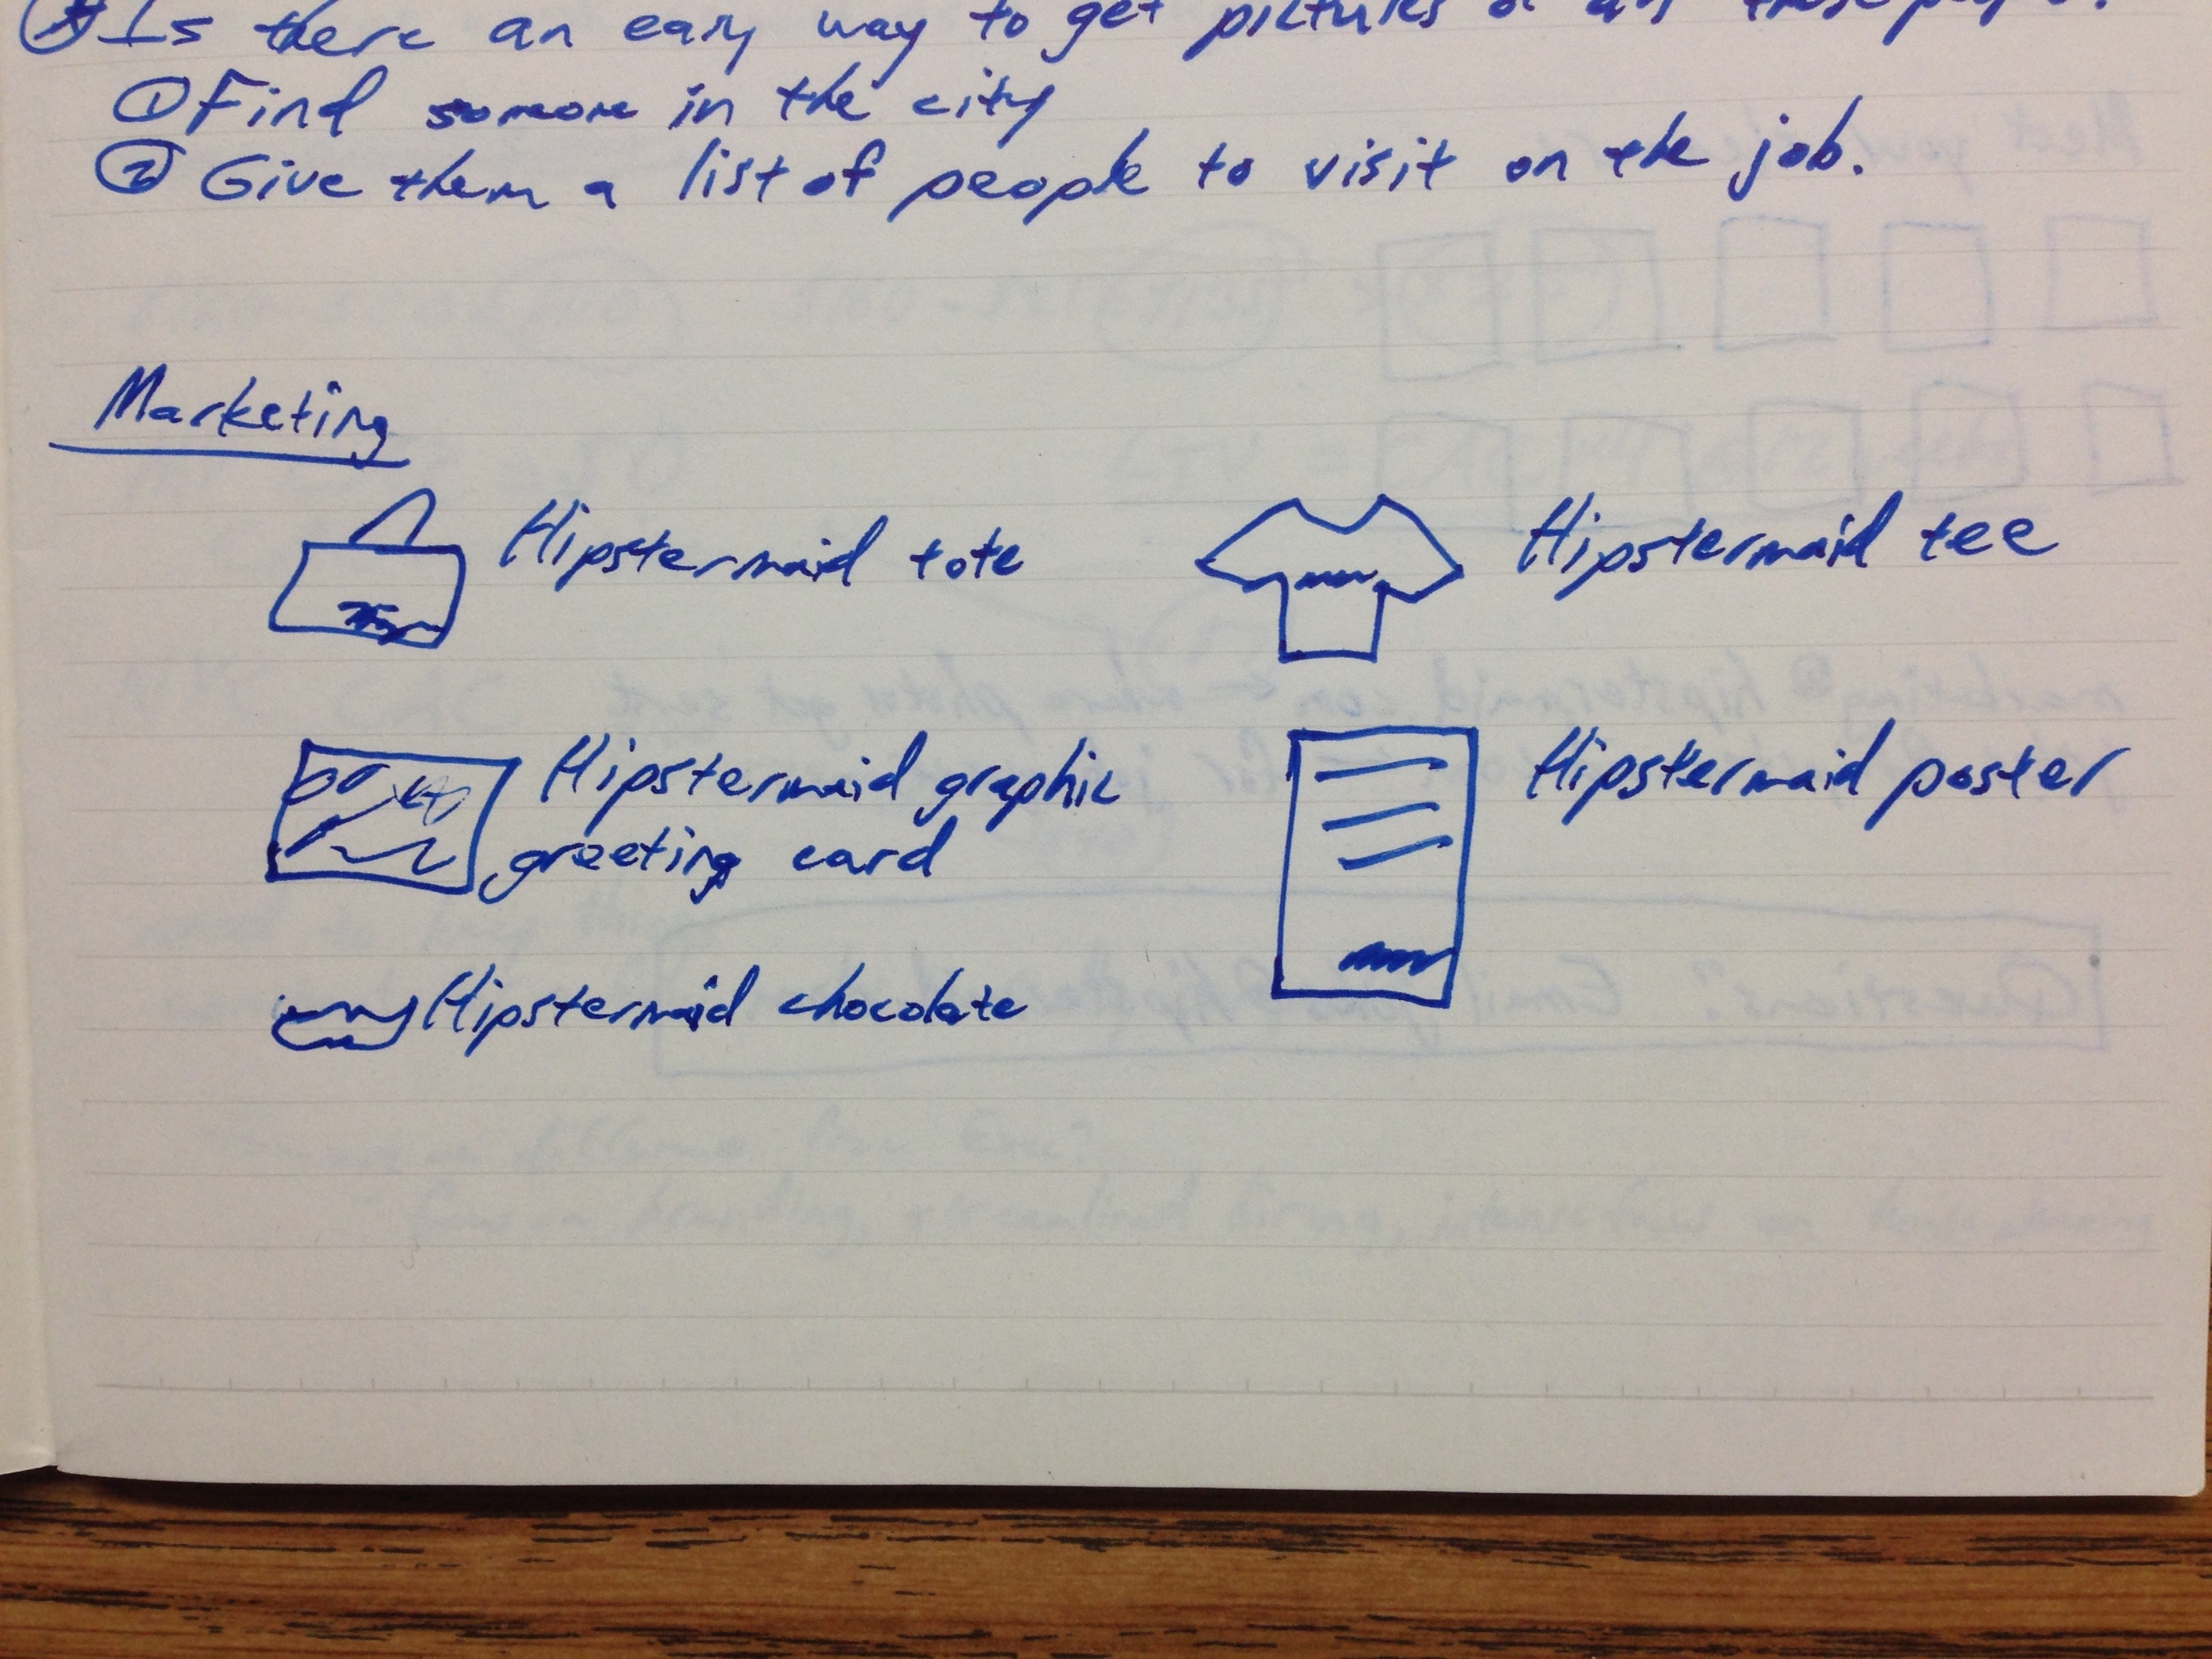 Is there an easy way to get pictures of all these people?
① Find someone in the city
② Give them a list of people to visit on the job.
Marketing
Hipstermaid tote
Hipstermaid tee
Hipstermaid graphic
greeting card
Hipstermaid poster
Hipstermaid chocolate